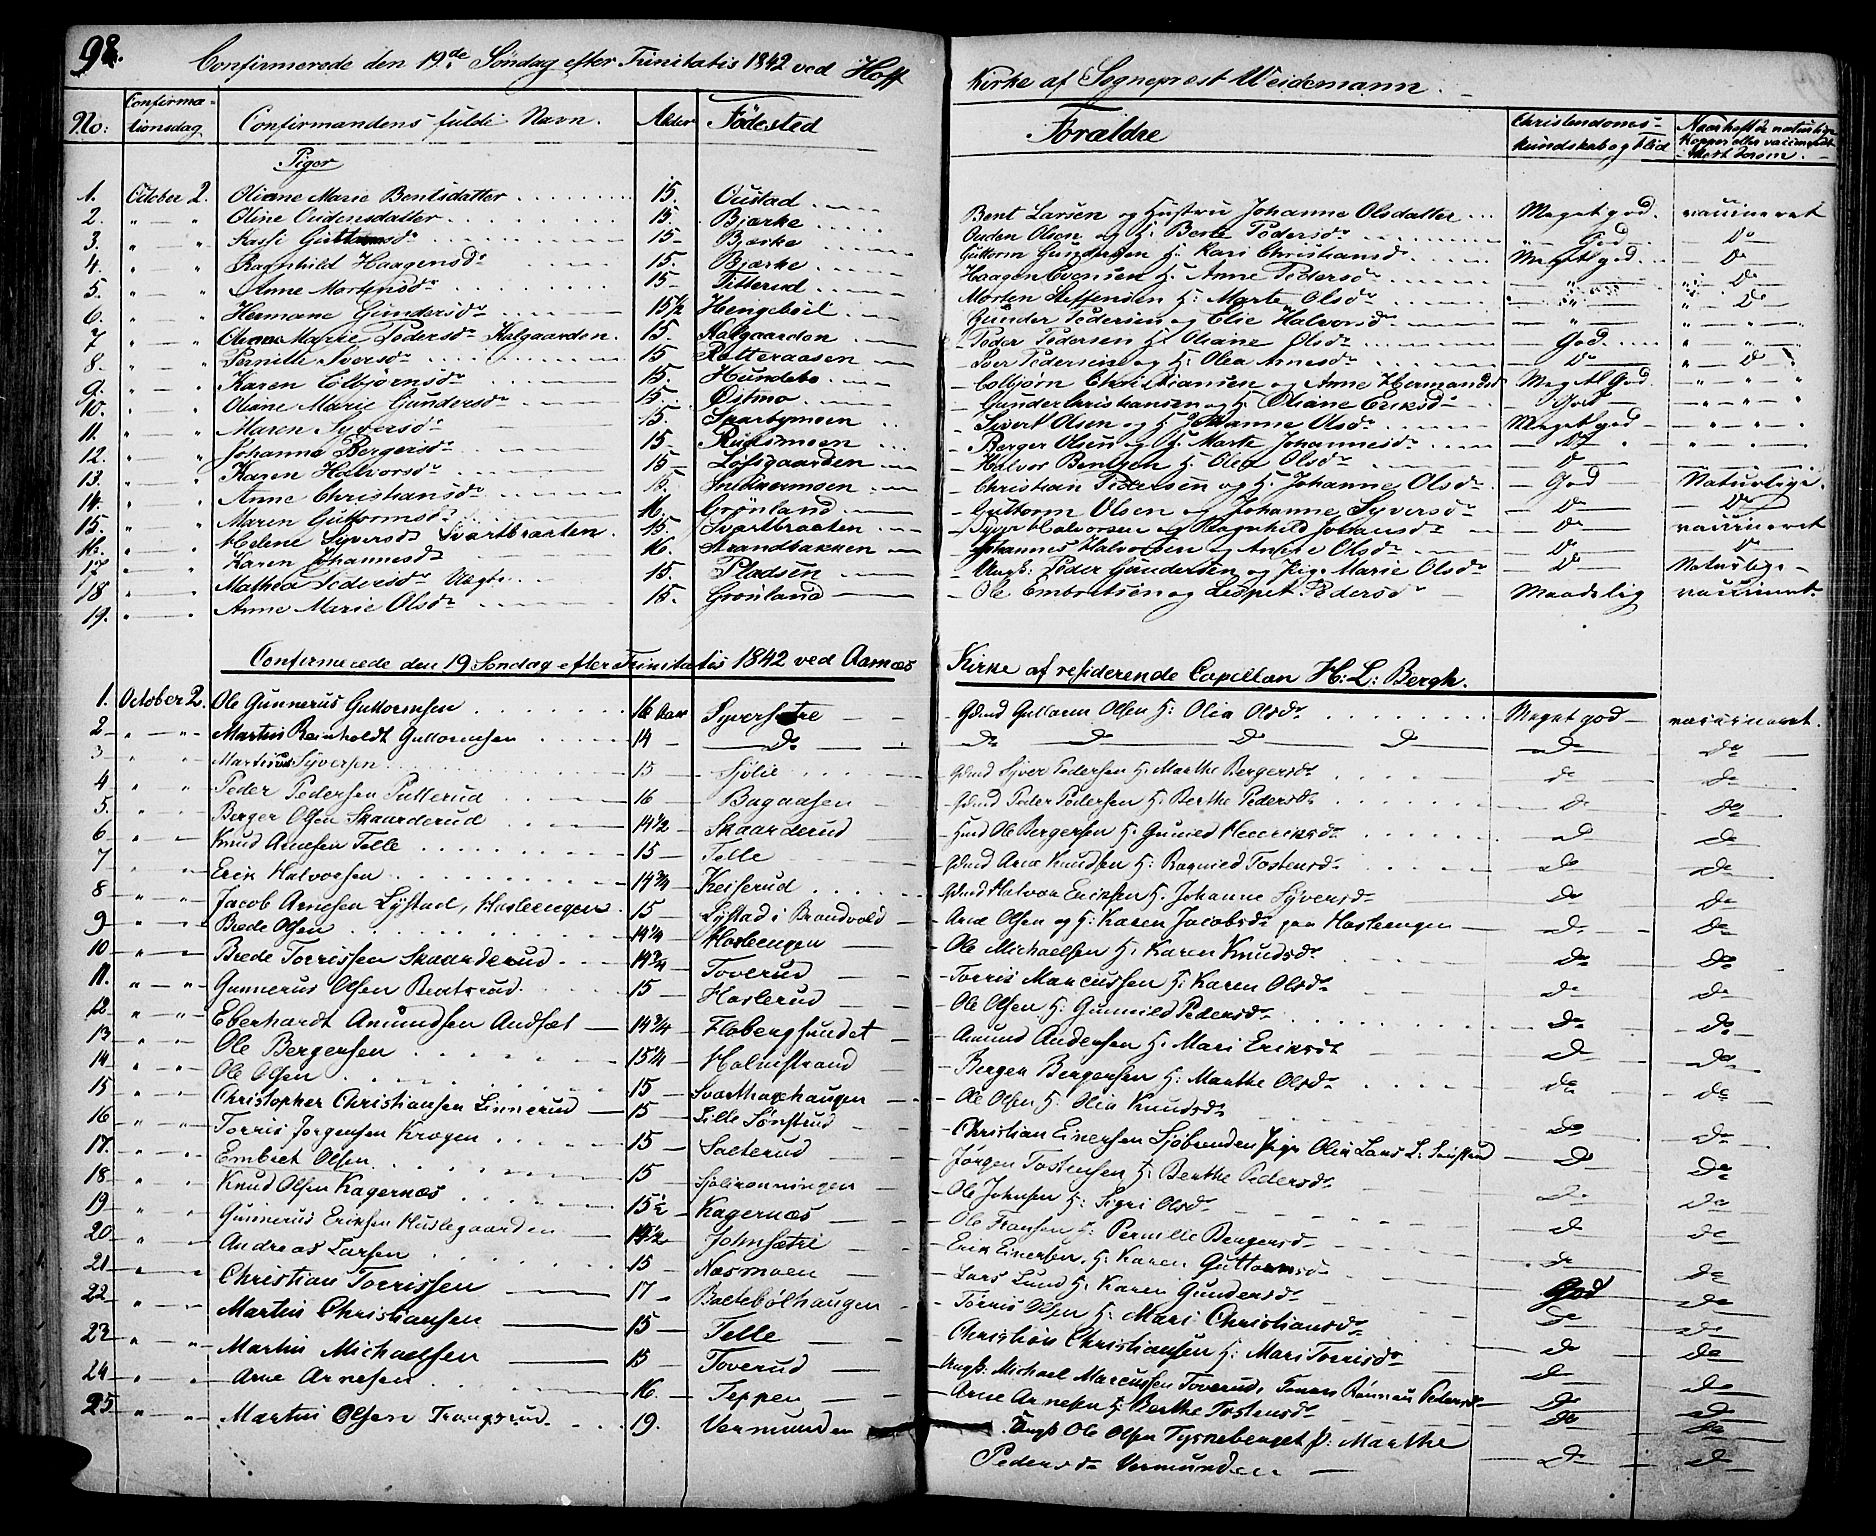 98.
Confirmerede den 19de Søndag efter Trinitatis 1842 ved Hoff Kirke af Sogneprest Weidemann.
No: Confirmationsdag Confirmandens fulde Navn. Alder Fødested Forældre Christendoms-kundskab og Flid Naar havt de naturlige Kopper eller vaccineret
Piger
1. October 2. Oliane Marie Bentsdatter 15. Oustad Bent Larsen og Hustru Johanne Olsdatter Meget god. vaccineret
2. " — " Oline Oudensdatter 15. Bjærke Ouden Olsen og H: Berte Pedersdr " God Do
3. " — " Kassi Guttormsdr 15 - Bjærke Guttorm Gundersen H: Kari Christiansdr Meget god Do
4. " — " Ragnhild Haagensdr 15. Bjærke Haagen Evensen H: Anne Pedersdr " " Do
5. " — " Anne Mortensdr 15 - Titterud Morten Steffensen H: Marte Olsdr " Do
6. " — " Hermane Gundersdr 15 1/2 Hengebøil Gunder Pedersen og Elie Halvorsdr — " — " — " — "
7 " — " Oliane Marie Pedersdr Kalgaarden 15 Kalgaarden Peder Pedersen H: Oliane Olsdr God " — "
8. " — " Pernille Iversdr 15 Rotteraasen Iver Pedersen og H: Olea Arnesdr Do " Do
9. " — " Karen Colbjørnsdr 15 Hundebo Colbjørn Christiansen og Anne Hermandsdr Meget God " — "
10. " — " Oliane Marie Gundersdr 15. Østmo Gunder Christiansen og H: Oliane Eriksdr God " — "
11. " — " Maren Syversdr 15. Sparbymoen Syvert Olsen og H: Johanne Olsdr Meget god " — "
12. " — " Johanne Bergersdr 15 - Ruusmoen Berger Olsen og H: Marte Johannesdr Do " — "
13. " — " Karen Halvorsdr 15 Løfsgaarden Halvor Bentsen H: Olea Olsdr Do
14. " — " Anne Christiansdr 15. Snikkermoen Christian Pedersen og H: Johanne Olsdr God Naturlige
15. " — " Maren Guttormsdr 16. Grønland Guttorm Olsen og Johanne Syversdr Do Do
16. " — " Helene Syversdr Svartbraaten 15. Svartbraaten Syver Halvorsen og Ragnhild Johansdr Do vaccineret
17 " — " Karen Johannesdr 16. Strandbakken Johannes Halvorsen og Anne Olsdr Do Do
18 " — " Mathea Pedersdr 15. Pladsen Ungk: Peder Gundersen og Pige Marie Olsdr Do Naturlige
19. " — " Anne Marie Olsdr 15. Grønland Ole Embretsen og Lispet Pedersdr Maadelig vaccineret.
Confirmerede den 19 Søndag efter Trinitatis 1842 ved Aasnæs Kirke af residerende Capellan H: L: Bergh.
1. October 2. Ole Gunnerus Guttormsen 16 Aar Syversætre Gdmd Guttorm Olsen H: Olia Olsdr Meget god vaccineret.
2 " — " Martin Reinholdt Guttormsen 14 — Do — Do Do Do Do Do Do
3 " " Martinus Syversen 15 — Sjølie Gdmd Syver Pedersen H: Marthe Bergersdr Do Do
4 " " Peder Pedersen Putterud 16 — Bagaasen Gdmd Peder Pedersen H: Berthe Pedersdr Do Do
5. " " Berger Olsen Skaarderud 14 1/2 Skaarderud Hmd Ole Bergersen H: Gunild Henriksdr Do Do
6 " — " Knud Arnesen Telle 15 — Telle Gdmd Arne Knudsen H: Ragnild Tostensdr Do Do
7 " " Erik Halvorsen 14 3/4 Keiserud Gdmd Halvor Eriksen H: Johanne Syversdr Do Do
8 " — " Jacob Arnesen Lystad, Hasleengen 15 — Lystad i Brandvold Arne Olsen og H: Karen Jacobsdr paa Hasleengen Do Do
9 " " Brede Olsen 14 1/4 Hasleengen Ole Michaelsen H: Karen Knudsdr Do Do
10 " — " Brede Torrissen Skaarderud 14 3/4 Toverud Torris Marcussen H: Karen Olsdr Do Do
11. " — " Gunnerus Olsen Bentsrud 15 — Haslerud Ole Olsen H: Gunnild Pedersdr Do Do
12 " — " Eberhardt Amundsen Audsæt 14 3/4 Flobergsundet Amund Andersen H: Mari Eriksdr Do Do
13 " — " Ole Bergersen 15 1/4 Holmstrand Berger Bergersen H: Marthe Olsdr Do Do
14 " — " Ole Olsen 15 Svarthaxhaugen Ole Olsen H: Olia Knudsdr Do Do
15 " — " Christopher Christiansen Linnerud 15 — Lille Sønstrud Christian Einersen Sjøbønden Pige Olia Do Do
16 " — " Torris Jørgensen Krogen 15 — Sæterud Jørgen Tostensen H: Berthe Pedersdr Do Do
17. " — " Embret Olsen 15 Sjølirønningen Ole Johnsen H: Sigri Olsdr Do Do
18 " — " Knud Olsen Kagernæs 15 1/2 Kagernæs Ole Fransen H: Pernille Bergersdr Do Do
19 " — " Gunnerus Eriksen Huslegaarden 14 1/2 Johnsætre Erik Einersen H: Karen Guttormsdr Do Do
20 " — " Andreas Larsen 15 Næsmoen Lars Lund H: Karen Gundersdr God Do
21 " — " Christian Torrissen 17 — Baltebølhaugen Torris Olsen H: Mari Christiansdr Do Do
22 " — " Martin Christiansen 15 — Telle Christian Christiansen H: Mari Torrisdr Do Do
23 " — " Martin Michaelsen 15 Toverud Ungk: Michael Marcussen Toverud, Rønnau Pedersdr Do Do
24 " — " Arne Arnesen 16. — Teppen Arne Arnesen H: Berthe Tostensdr Do Do
25 " — " Martin Olsen Trangsrud 19. Vermunden Ungk Ole Olsen Tyskeberget P: Marthe Do Do
Pedersdr Vermunden — Do Do